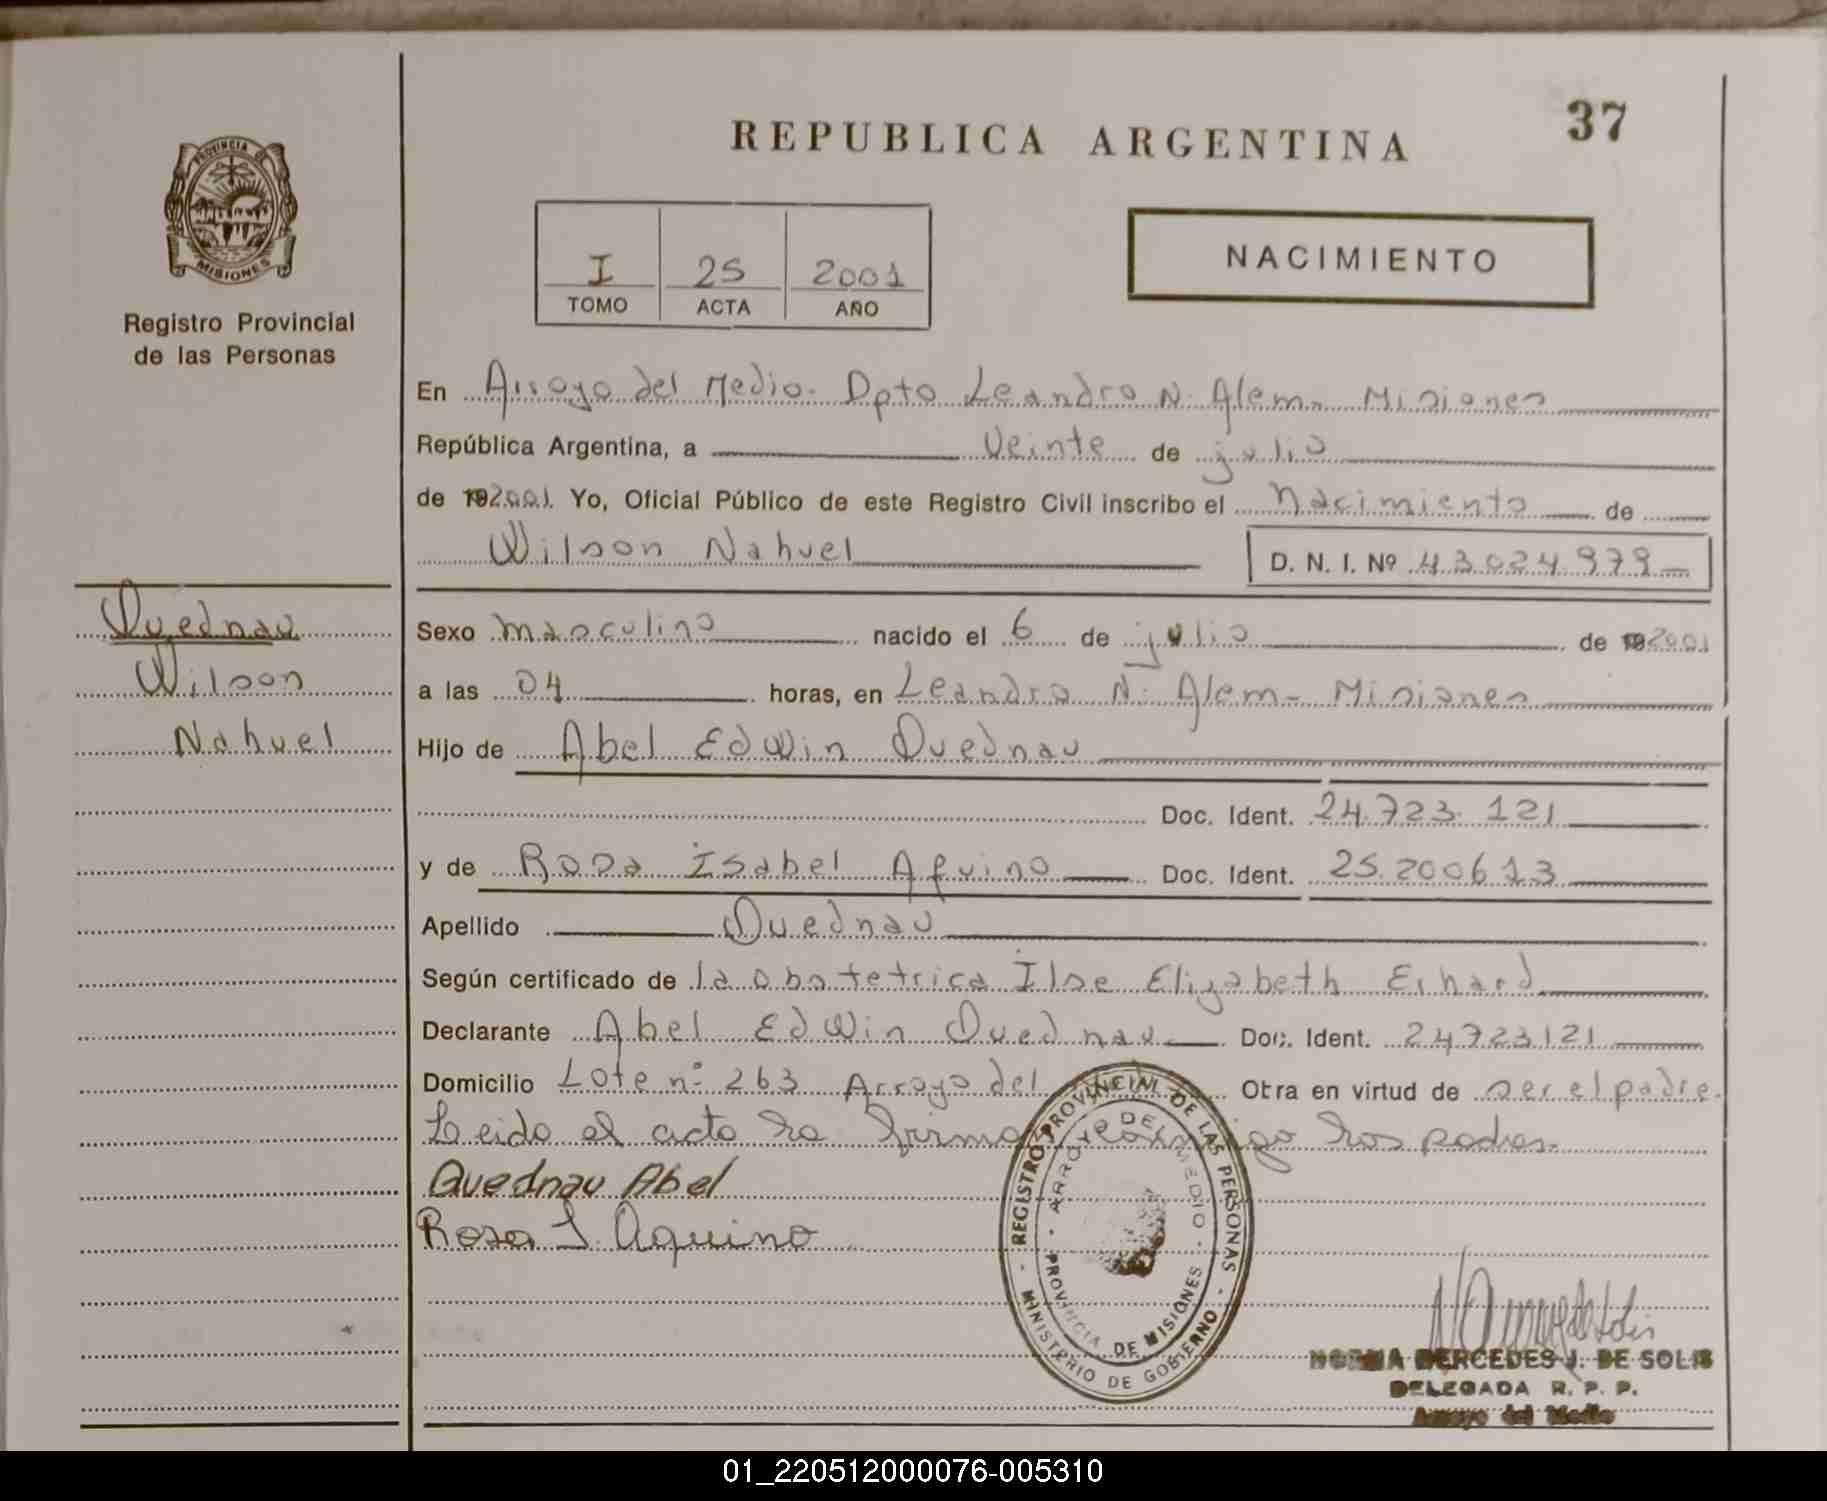 37
REPUBLICA ARGENTINA
PROVINCIA DE
MISIONES
Registro Provincial
de las Personas
I 25 2001
TOMO ACTA AÑO
NACIMIENTO
En Arroyo del Medio. Dpto Leandro N. Alem - Misiones
República Argentina, a veinte de julio
de 192001. Yo, Oficial Público de este Registro Civil inscribo el nacimiento de
Wilson Nahuel D. N. I. Nº 43024979
Quednau
Wilson
Nahuel
Sexo masculino nacido el 6 de julio de 192001
a las 04 horas, en Leandro N. Alem - Misiones
Hijo de Abel Edwin Quednau
Doc. Ident. 24.723.121
y de Rosa Isabel Aquino Doc. Ident. 25.200613
Apellido Quednau
Según certificado de la obstetrica Ilse Elizabeth Erhard
Declarante Abel Edwin Quednau Doc. Ident. 24723121
Domicilio Lote nº 263 Arroyo del Otra en virtud de ser el padre.
Leido el acta la firma conmigo los padres.
Quednau Abel
Rosa I. Aquino
REGISTRO PROVINCIAL DE LAS PERSONAS
MINISTERIO DE GOBIERNO
ARROYO DEL MEDIO
PROVINCIA DE MISIONES
NORMA MERCEDES J. DE SOLIS
DELEGADA R. P. P.
Arroyo del Medio
01_220512000076-005310